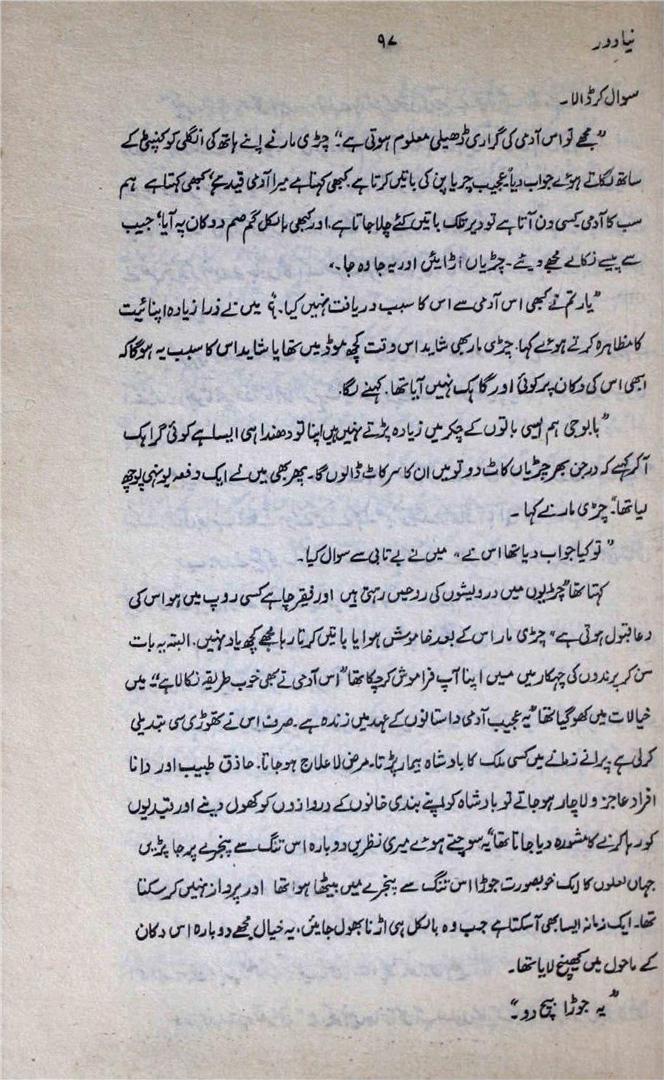 نیا دور
۹۷
سوال کر ڈالا۔
"مجھے تو اس آدمی کی گراری ڈھیلی معلوم ہوتی ہے" چڑی مار نے اپنے ہاتھ کی انگلی کو کنپٹی کے
ساتھ لگاتے ہوئے جواب دیا "عجیب چریا پن کی باتیں کرتا ہے۔ کبھی کہتا ہے میرا آدمی قید ہے، کبھی کہتا ہے ہم
سب کا آدمی کسی دن آتا ہے تو دیر تلک باتیں کئے چلا جاتا ہے۔ اور کبھی بالکل گم صم دوکان پہ آیا، جیب
سے پیسے نکالے مجھے دیئے۔ چڑیاں اڑائیں اور یہ جا وہ جا۔"
"یار تم نے کبھی اس آدمی سے اس کا سبب دریافت نہیں کیا۔؟" میں نے ذرا زیادہ اپنائیت
کا مظاہرہ کرتے ہوئے کہا۔ چڑی مار بھی شاید اس وقت کچھ موڈ میں تھا یا شاید اس کا سبب یہ ہو گا کہ
ابھی اس کی دکان پر کوئی اور گاہک نہیں آیا تھا۔ کہنے لگا۔
"بابو جی ہم ایسی باتوں کے چکر میں زیادہ پڑتے نہیں ہیں اپنا تو دھندا ہی ایسا ہے کوئی گراہک
آ کر کہے کہ درجن بھر چڑیاں کاٹ دو تو میں ان کا سر کاٹ ڈالوں گا۔ پھر بھی میں نے ایک دفعہ یونہی پوچھ
لیا تھا"۔ چڑی مار نے کہا۔
"تو کیا جواب دیا تھا اس نے" میں نے بے تابی سے سوال کیا۔
کہتا تھا "چڑیوں میں درویشوں کی روحیں رہتی ہیں اور فقیر چاہے کسی روپ میں ہو اس کی
دعا قبول ہوتی ہے" چڑی مار اس کے بعد خاموش ہوا یا باتیں کرتا رہا مجھے کچھ یاد نہیں۔ البتہ یہ بات
سن کر پرندوں کی چہکار میں میں اپنا آپ فراموش کر چکا تھا "اس آدمی نے بھی خوب طریقہ نکالا ہے"۔ میں
خیالات میں کھو گیا تھا "یہ عجیب آدمی داستانوں کے عہد میں زندہ ہے۔ صرف اس نے تھوڑی سی تبدیلی
کرلی ہے۔ پرانے زمانے میں کسی ملک کا بادشاہ بیمار پڑتا۔ مرض لا علاج ہو جاتا۔ حاذق طبیب اور دانا
افراد عاجز و لاچار ہو جاتے تو بادشاہ کو اپنے بندی خانوں کے دروازوں کو کھول دینے اور قیدیوں
کو رہا کرنے کا مشورہ دیا جاتا تھا" یہ سوچتے ہوئے میری نظریں دوبارہ اس تنگ سے پنجرے پر جا پڑیں
جہاں لعلوں کا ایک خوبصورت جوڑا اس تنگ سے پنجرے میں بیٹھا ہوا تھا اور پرواز نہیں کر سکتا
تھا۔ ایک زمانہ ایسا بھی آ سکتا ہے جب وہ بالکل ہی اڑنا بھول جائیں، یہ خیال مجھے دوبارہ اس دکان
کے ماحول میں کھینچ لایا تھا۔
"یہ جوڑا بیچ دو۔"